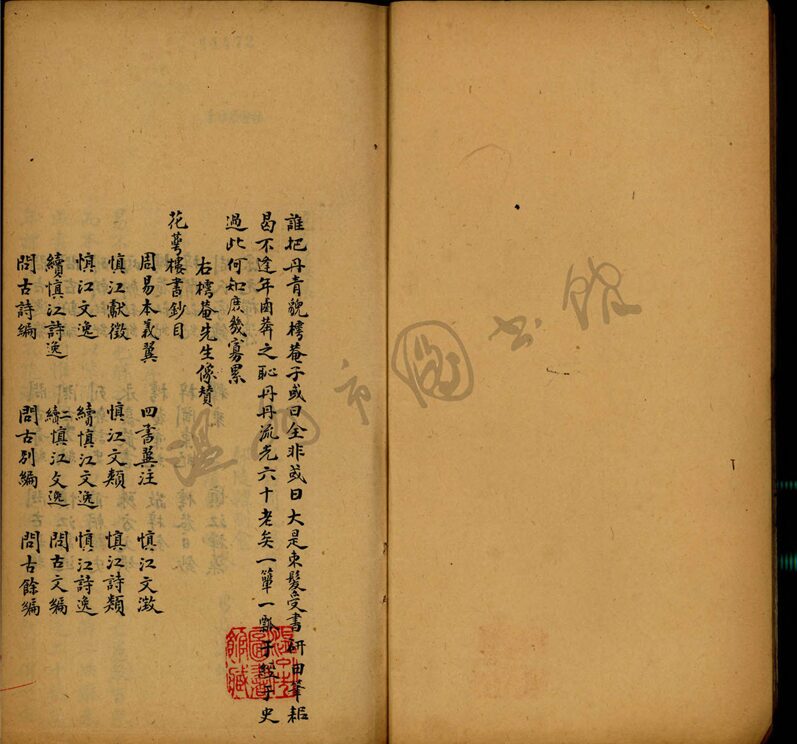 誰把丹青貌樗菴子或曰全非或曰大是束髮受書研田筆耘
曷不逢年鹵莽之恥丹丹流光六十老矣一簞一瓢于經于史
過此何知庶幾寡累
右樗菴先生像贊
花萼樓書鈔目
周易本義翼 四書翼注 慎江文徵
慎江獻徵 慎江文類 慎江詩類
慎江文逸 續慎江文逸 慎江詩逸
續慎江詩逸 二續慎江文逸 問古文編
問古詩編 問古別編 問古餘編
溫州市圖書館